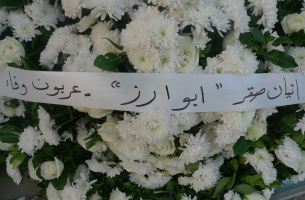 إنيان صقر "ابو ارز" - عربون وفاء